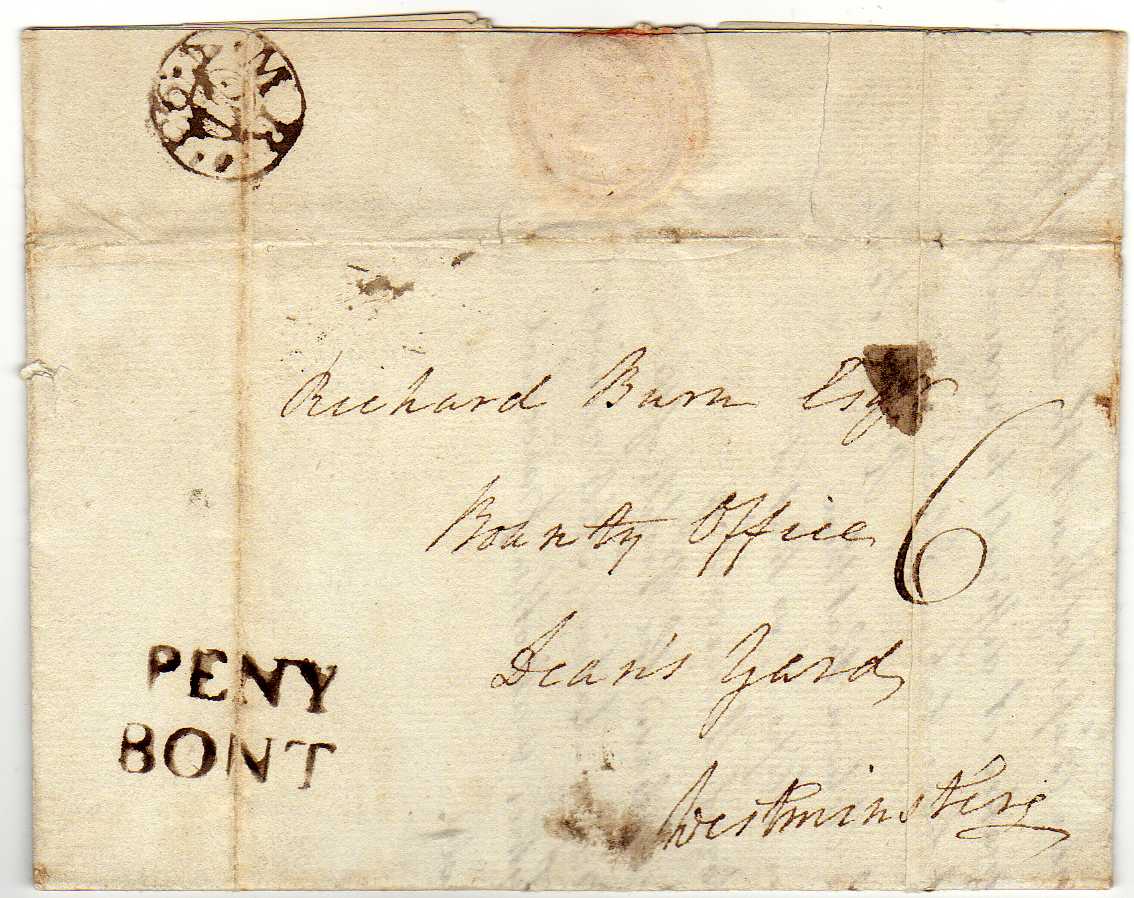 Richard Burn Esqr
Bounty Office
6
Dean's Yard
Westminster
PENY
BONT